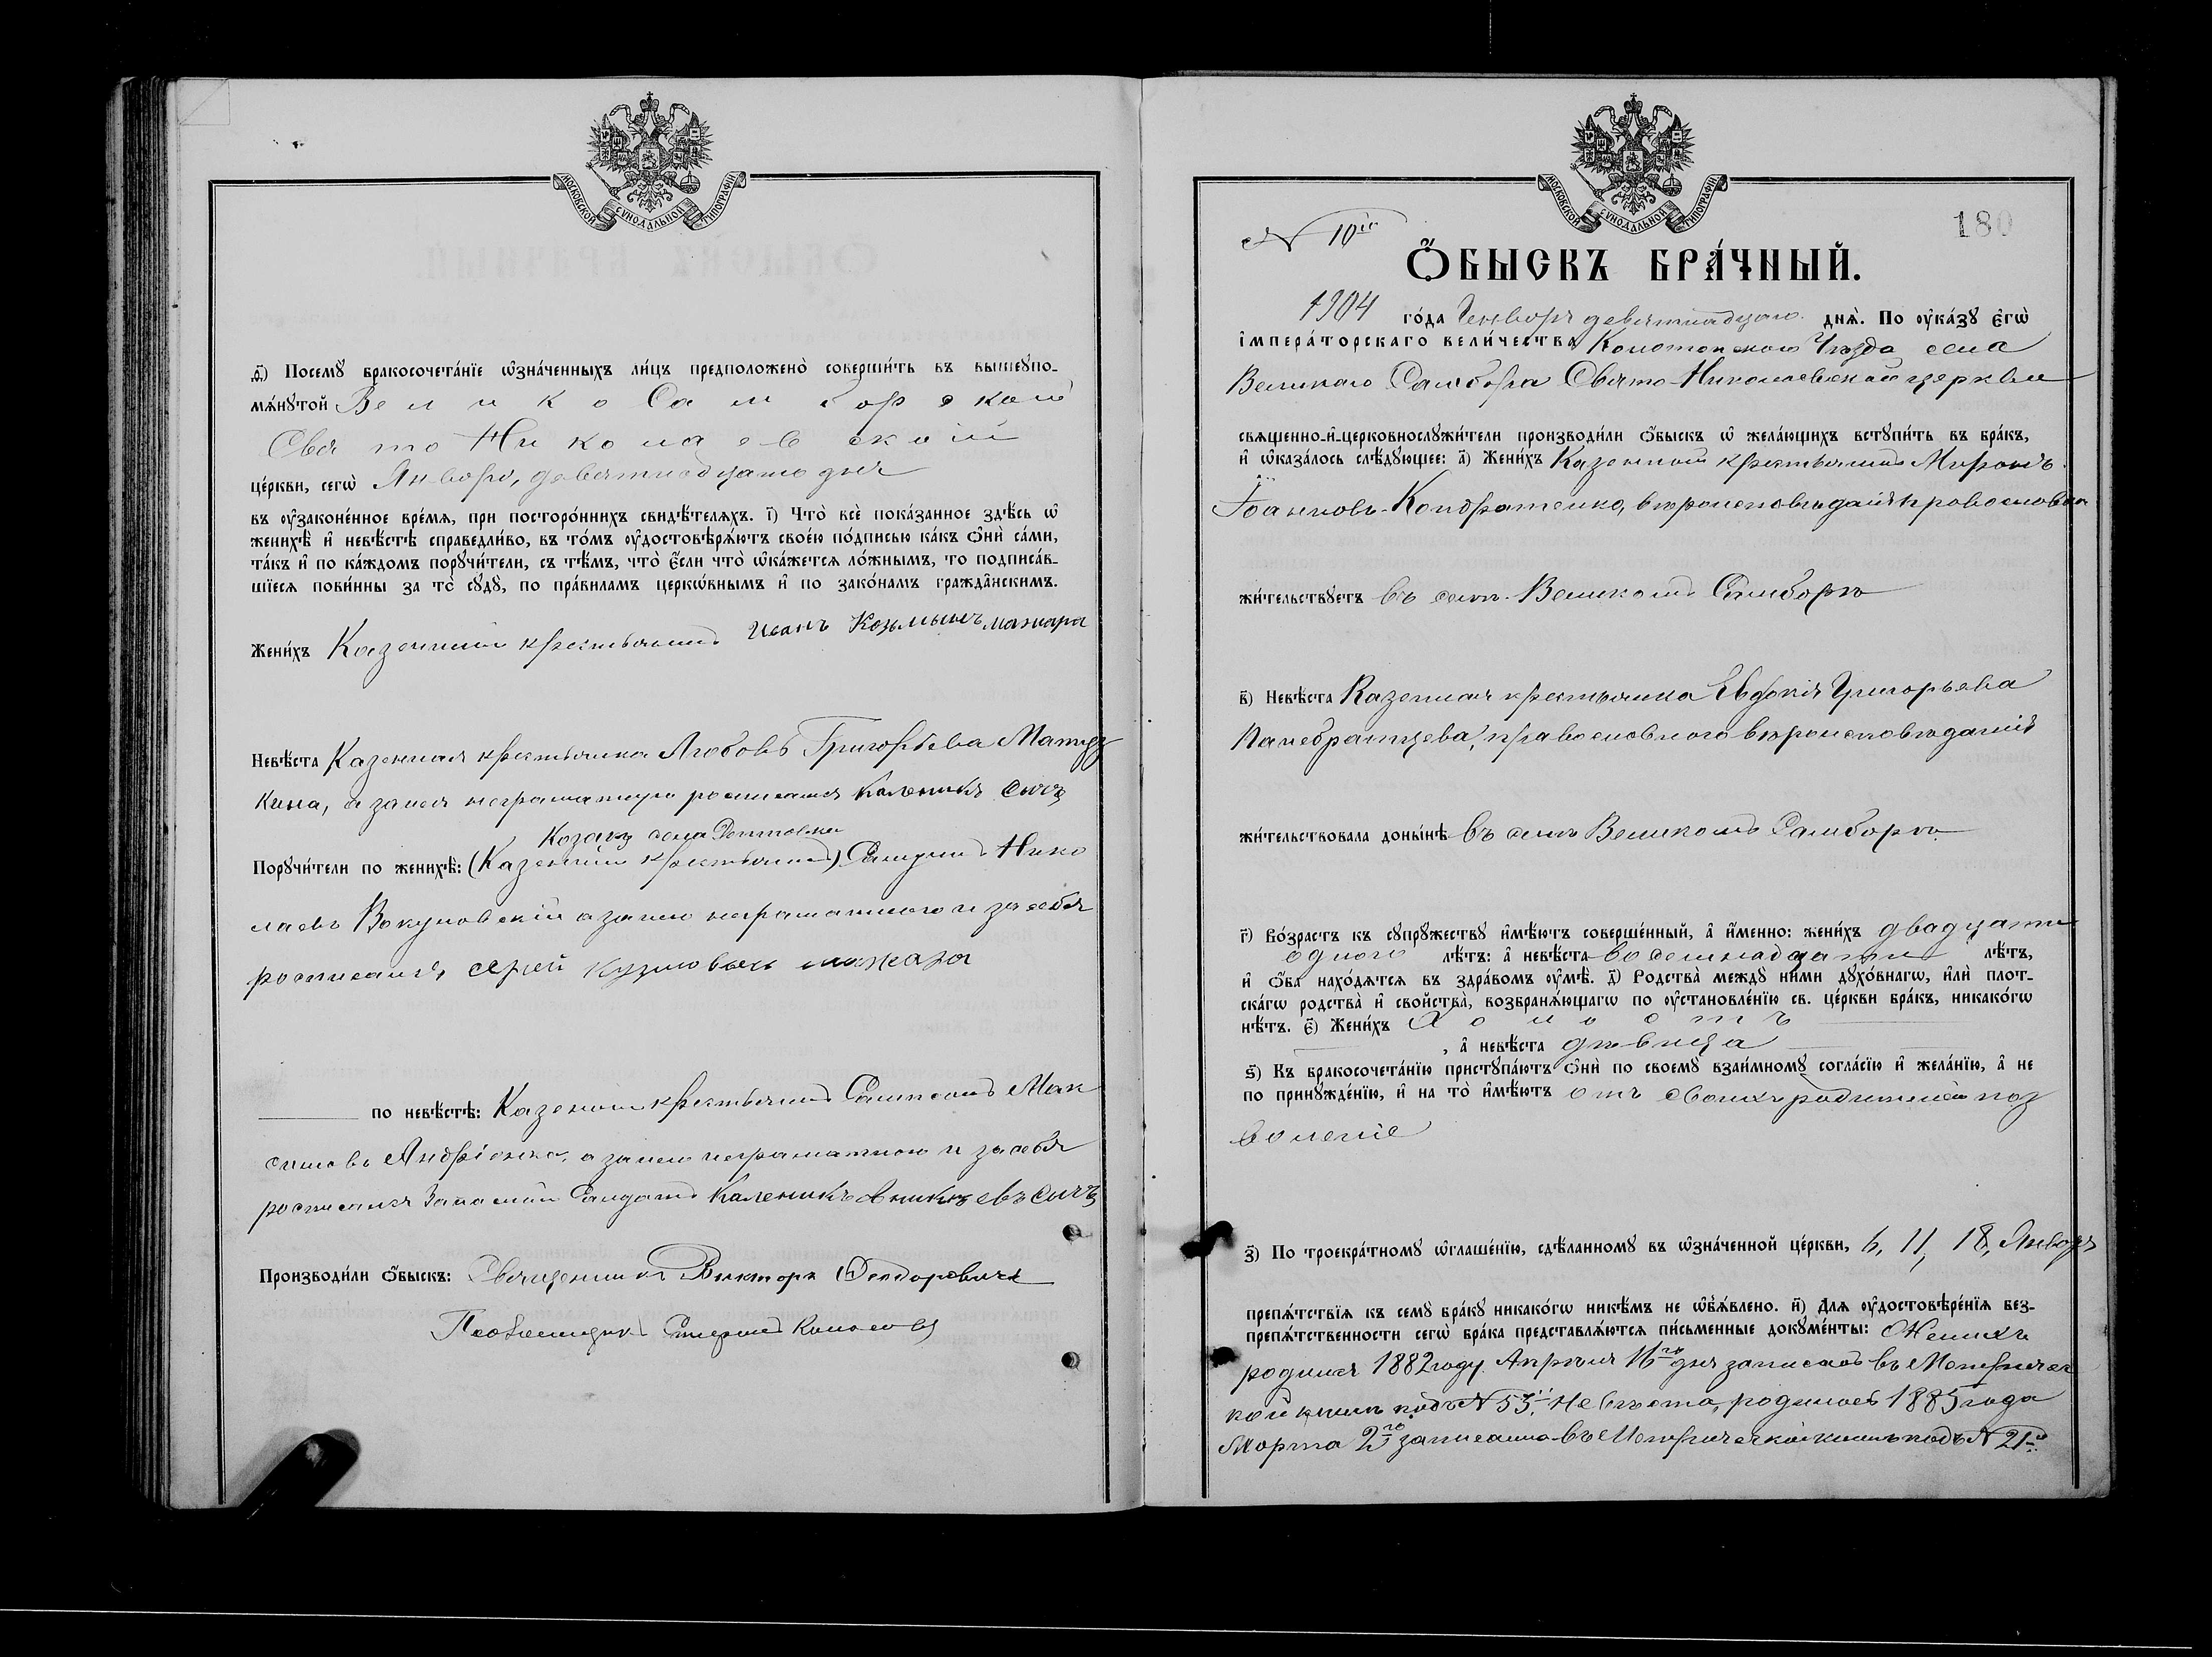 МОСКОВСКОЙ СѴНОДАЛЬНОЙ ТИПОГРАФІИ
ѳ҃) Посемꙋ бракосочета́нїе ѡ҆зна́ченныхъ ли́цъ предположено̀ соверши́ть въ вышеꙋпо-
мѧ́нꙋтой Велико Самборской
Свято Николаевской
це́ркви, сегѡ̀ Января, девятнадцато дня
въ ᲂу҆законе́нное вре́мѧ, при посторо́ннихъ свидѣ́телѧхъ. і҃) Что̀ всѐ пока́занное здѣ́сь ѡ҆
женихѣ̀ и҆ невѣ́стѣ справедли́во, въ то́мъ ᲂу҆достовѣрѧ́ютъ свое́ю по́дписью ка́къ ѻ҆нѝ са́ми,
та́къ и҆ по ка́ждомъ порꙋчи́тели, съ тѣ́мъ, что̀ є҆́сли что̀ ѡ҆ка́жетсѧ ло́жнымъ, то подписа́в-
шїесѧ пови́нны за то̀ сꙋдꙋ̀, по пра́виламъ церкѡ́внымъ и҆ по зако́намъ гражда̑нскимъ.
Жени́хъ Казенный крестьянинъ Иванъ Козьминъ мажара
Невѣ́ста Казенная крестьянка Любовь Григорьева
кина, а за нея неграмотную росписался Каленикъ Сычъ
Козакъ села
Порꙋчи́тели по женихѣ̀: (Казенный крестьянинъ) Нико
лаевъ а за него неграмотного и за себя
росписался Сергей Кузмовичъ мажара
по невѣ́стѣ: Казенный крестьянинъ Сампсонъ Мак
симовъ Андріенко, а за него неграмотного и за себя
росписался Запасный Солдатъ Каленикъ Сычъ
Производи́ли ѻ҆́быскъ: Священникъ Викторъ Ѳеодоровичъ
Псаломщикъ
МОСКОВСКОЙ СѴНОДАЛЬНОЙ ТИПОГРАФІИ
180
№ 10й
Ѻ҆́БЫСКЪ БРА́ЧНЫЙ.
1904 го́да Генваря девятнадцато днѧ̀. По ᲂу҆ка́зꙋ є҆гѡ̀
і҆мпера́торскаго вели́чества Конотопского Уѣзда села
Великаго Самбора Свято-Николаевской церкви
свѧщенно-и҆-церковнослꙋжи́тели производи́ли ѻ҆́быскъ ѡ҆ жела́ющихъ встꙋпи́ть въ бра́къ,
и҆ ѡ҆каза́лось слѣ́дꙋющее: а҃) Жени́хъ Казенный крестьянинъ Миронъ
Іоанновъ Кондратенко, вѣроисповѣданія православн
жи́тельствꙋетъ въ селѣ Великомъ Самборѣ
в҃) Невѣ́ста Казенная крестьянка Евдокія Григорьева
Панебратцева, православного вѣроисповѣданія
жи́тельствовала доны́нѣ въ селѣ Великомъ Самборѣ
г҃) Во́зрастъ къ сꙋпрꙋ́жествꙋ и҆мѣ́ютъ соверше́нный, а҆ и҆́менно: жени́хъ двадцати
одного лѣ́тъ: а҆ невѣ́ста восемнадцати лѣ́тъ,
и҆ ѻ҆́ба нахо́дѧтсѧ въ здра́вомъ ᲂу҆мѣ̀. д҃) Родства̀ междꙋ ни́ми дꙋхо́внагѡ, и҆лѝ плот-
ска́гѡ родства̀ и҆ свойства̀, возбранѧ́ющагѡ по ᲂу҆становле́нїю св. це́ркви бра́къ, никако́гѡ
нѣ́тъ. є҃) Жени́хъ Холостъ
, а҆ невѣ́ста дѣвица
ѕ҃) Къ бракосочета́нїю пристꙋпа́ютъ ѻ҆нѝ по своемꙋ̀ взаи́мномꙋ согла́сїю и҆ жела́нїю, а҆ не
по принꙋжде́нїю, и҆ на то̀ и҆мѣ́ютъ отъ своихъ родителей поз
воленіе
з҃) По троекра́тномꙋ ѡ҆глаше́нїю, сдѣ́ланномꙋ въ ѡ҆зна́ченной це́ркви, 6, 11, 18, Января
препѧ́тствїѧ къ семꙋ̀ бра́кꙋ никако́гѡ никѣ́мъ не ѡ҆бъѧ́влено. и҃) Длѧ ᲂу҆достовѣре́нїѧ без-
препѧ́тственности сегѡ̀ бра́ка представлѧ́ютсѧ пи́сьменные докꙋме́нты: Женихъ
родился 1882 году Апрѣля 16го дня записанъ въ Метричес
кой книгѣ подъ № 53й, Невѣста, родилась 1885 года
Марта 2го записана въ Метрической книгѣ подъ № 21й